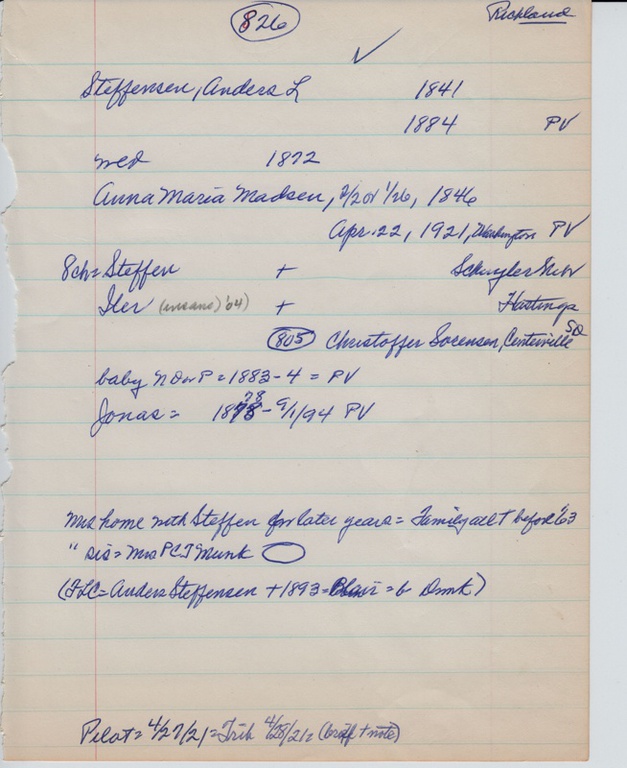 826
Richland
✓
Steffensen, Anders L 1841
1884 PV
wed 1872
Anna Maria Madsen, 2/20 or 1/26, 1846
Apr. 22, 1921, Washington PV
8 ch = Steffen + Schuyler Nebr
Iler (insane) '04) + Hastings
805 Christoffer Sorensen, Centerville SD
baby = 1883-4 = PV
Jonas = 1878 - 9/1/94 PV
Mrs home with Steffen for later years = Family all + before '63
" sis = Mrs P.C.J Munk
(FLC = Anders Steffensen + 1893 = Blair = b Dmk)
Pilot = 4/27/21 = Trib 4/28/21 = (brief + note)